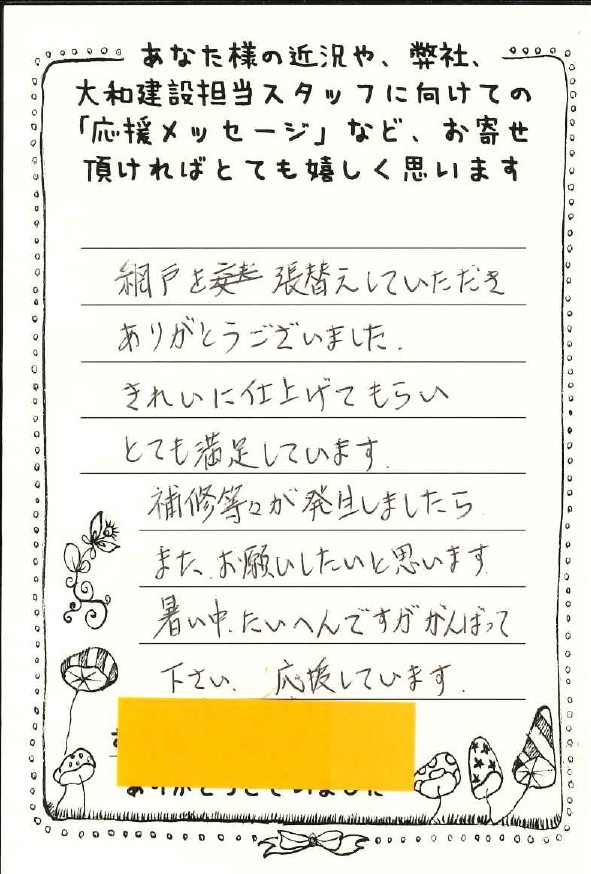 あなた様の近況や、弊社、
大和建設担当スタッフに向けての
「応援メッセージ」など、お寄せ
頂ければとても嬉しく思います
網戸を 張替えしていただき
ありがとうございました.
きれいに仕上げてもらい
とても満足しています.
補修等々が発生しましたら
また、お願いしたいと思います
暑い中.たいへんですががんばって
下さい. 応援しています.
ありがとうございました